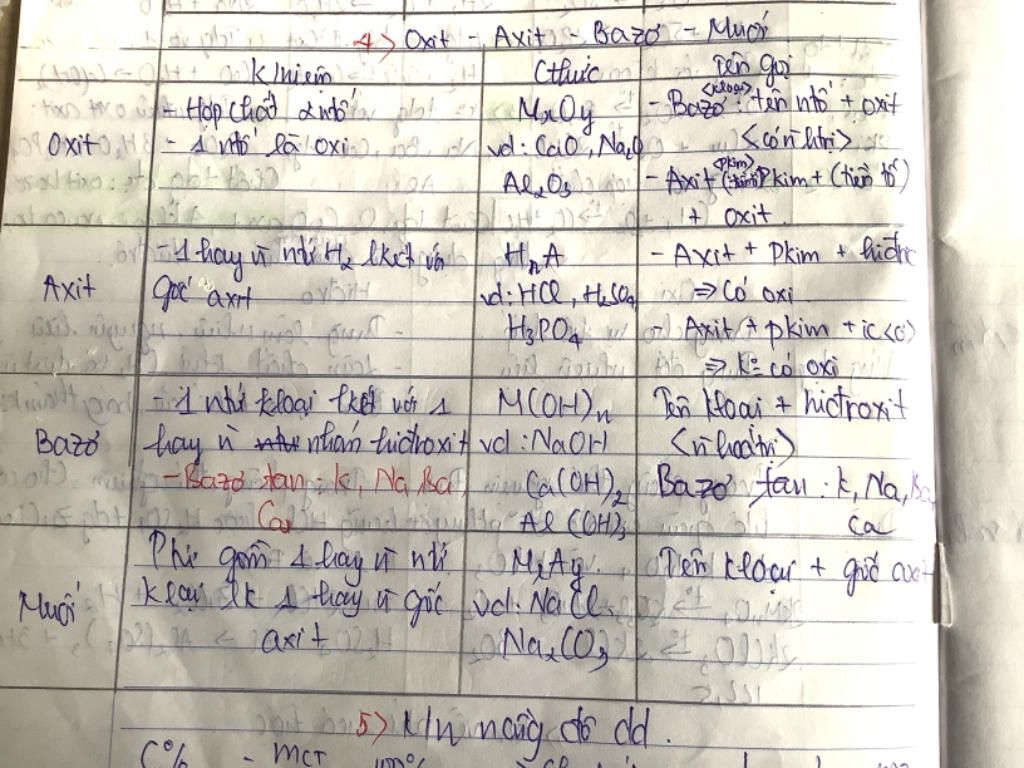 4> Oxit - Axit - Bazơ - Muối
K/niệm Cthức Tên gọi
Oxit
+ Hợp chất 2 ntố
- 1 ntố là oxi
MxOy
vd: CaO, Na2O
Al2O3
<kloại>
- Bazơ: tên ntố + oxit
<có ñ htrị>
<pkim>
- Axit Pkim + (tiền tố)
+ oxit
Axit
- 1 hay ñ ntử H2 lkết với
gốc axit
HnA
vd: HCl, H2SO4
H3PO4
- Axit + Pkim + hiđric
⇒ Có oxi
Axit + pkim + ic
⇒ K có oxi
Bazơ
- 1 ntử kloại lkết với 1
hay ñ nhóm hiđroxit
- Bazơ tan: k, Na, Ba,
Ca
M(OH)n
vd: NaOH
Ca(OH)2
Al(OH)3
Tên kloại + hiđroxit
<ñ hoá trị>
Bazơ tan: k, Na, Ba
Ca
Muối
Ptử gồm 1 hay ñ ntử
kloại lk 1 hay ñ gốc
axit
MxAy
vd: NaCl.
Na2CO3
Tên kloại + gốc axit
5> K/n nồng độ dd.
C% = mCT 100%